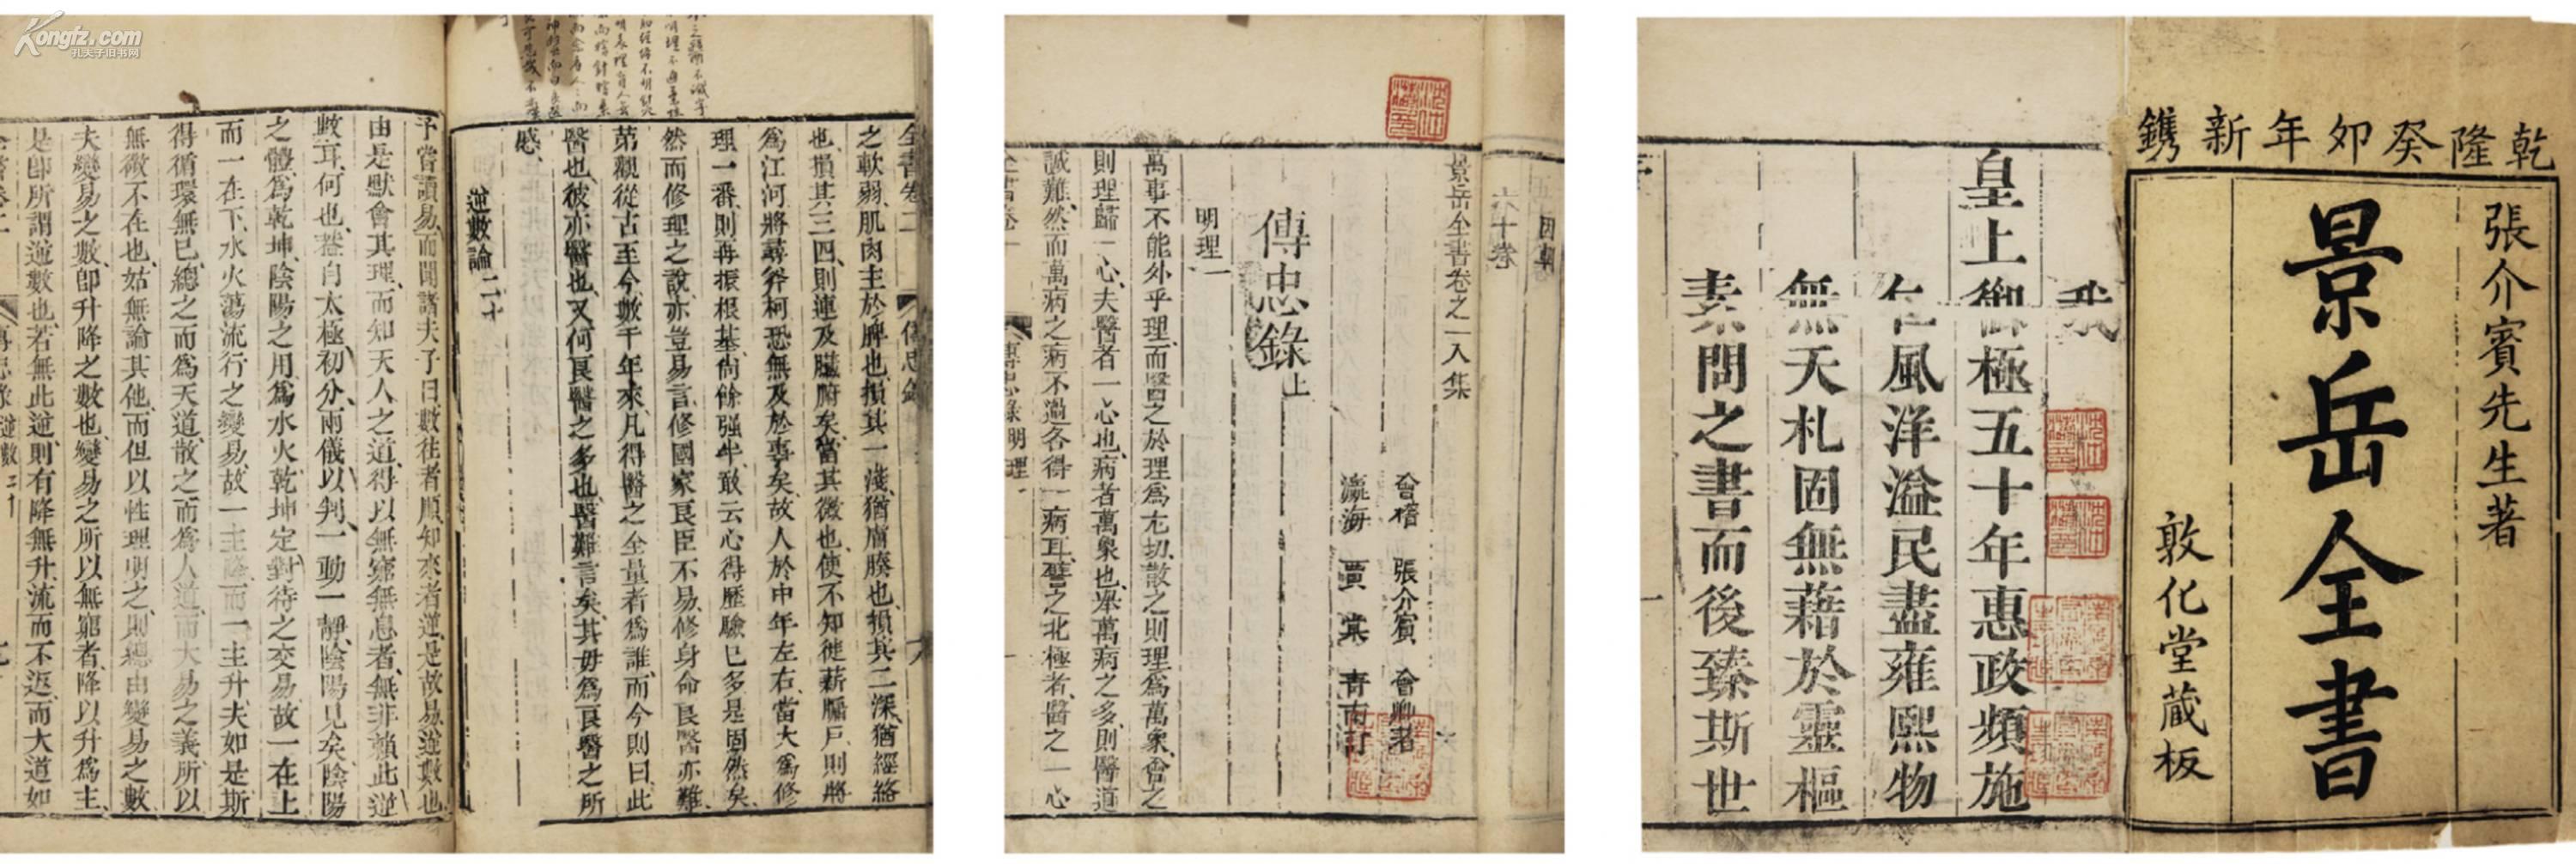 Kongfz.com
孔夫子旧书网
全書卷二
之軟弱肌肉主於脾也損其一淺猶膚腠也損其二深猶經絡
也損其三四則連及臟腑矣當其微也使不知徙薪牖戶則將
爲江河將尋斧柯恐無及於事矣故人於中年左右當大爲修
理一番則再振根基尚餘强半敢云心得歷驗已多是固然矣
然而修理之說亦豈易言修國家良臣不易修身命良醫亦難
第觀從古至今數千年來凡得醫之全量者爲誰而今則曰此
醫也彼亦醫也又何良醫之多也醫難言矣其毋爲良醫之所
惑
逆數論 二十
予嘗讀易而聞諸夫子曰數往者順知來者逆是故易逆數也
由是默會其理而知天人之道得以無窮無息者無非賴此逆
數耳何也蓋自太極初分兩儀以判一動一靜陰陽見矣陰陽
之體爲乾坤陰陽之用爲水火乾坤定對待之交易故一在上
而一在下水火蕩流行之變易故一主降而一主升夫如是斯
得循環無已總之而爲天道散之而爲人道而大易之義所以
無微不在也姑無論其他而但以性理明之則總由變易之數
夫變易之數卽升降之數也變易之所以無窮者降以升爲主
是卽所謂逆數也若無此逆則有降無升流而不返而大道如
六十卷
景岳全書卷之一入集
會稽 張介賓 會卿著
瀛海 賈棠 青南訂
傳忠錄上
明理一
萬事不能外乎理而醫之於理爲尤切散之則理爲萬象會之
則理歸一心夫醫者一心也病者萬象也舉萬病之多則醫道
誠難然而萬病之病不過各得一病耳譬之北極者醫之一心
全書卷一
傳忠錄 明理
乾隆癸卯年新鐫
張介賓先生著
景岳全書
敦化堂藏板
我
皇上御極五十年惠政頻施
仁風洋溢民盡雍熙物
無夭札固無藉於靈樞
素問之書而後臻斯世